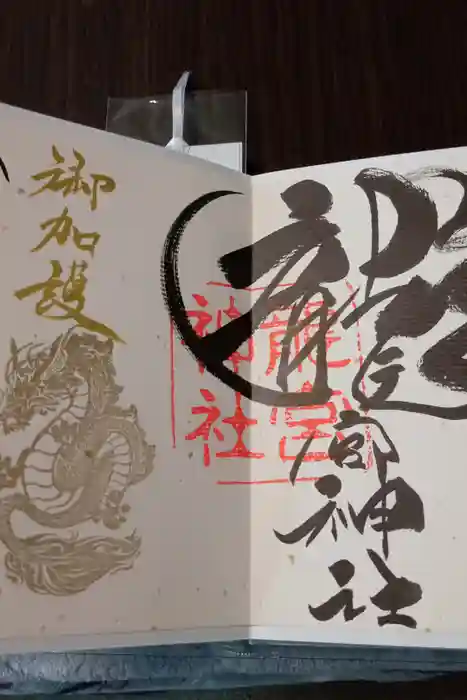 龍宮神社
龍宮
神社
御加護